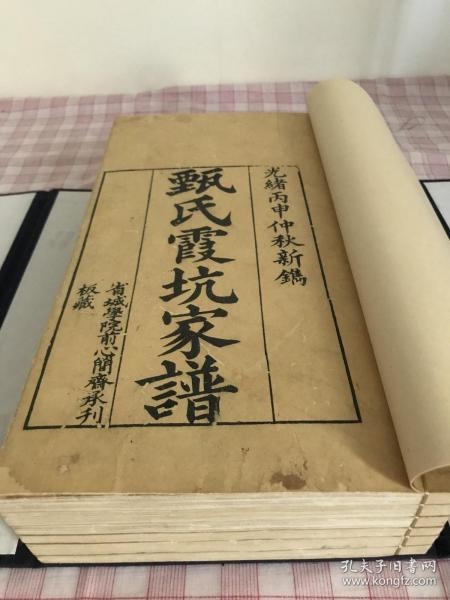 光緒丙申仲秋新鐫
甄氏霞坑家譜
省城學院前心簡齋承刊
板藏
孔夫子旧书网
www.kongfz.com